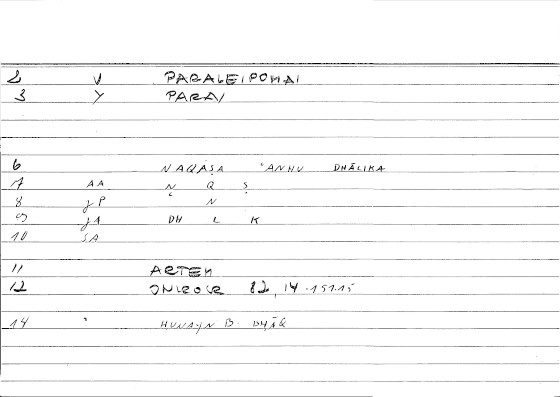 2 V PARALEIPOMAI
3 Y PARAI
6 NAQAṢA ʿANHU DHĀLIKA
7 AA N Q Ṣ
8 JP N
9 JA DH L K
10 SA
11 ARTEM
12 ONIROCR 82, 14
14 HUNAYN B.